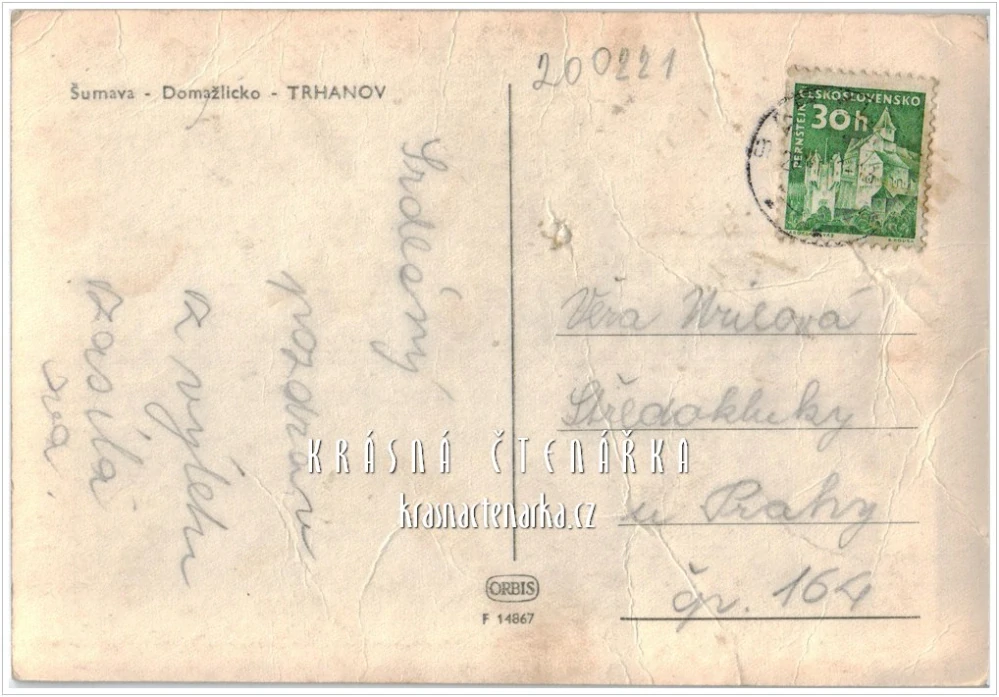 200221
Šumava - Domažlicko - TRHANOV
ČESKOSLOVENSKO
30h
PERNŠTEJN
Srdečný
pozdrav
z výletu
zasílá
Věra
Středokluky
u Prahy
čp. 164
KRÁSNÁ ČTENÁŘKA
krasnactenarka.cz
ORBIS
F 14867